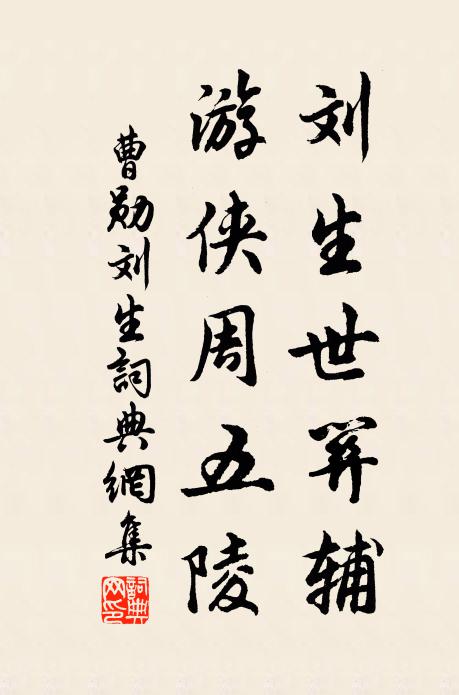 刘生世辅
游侠周五陵
曹勋刘生詞典網集
詞典
网印